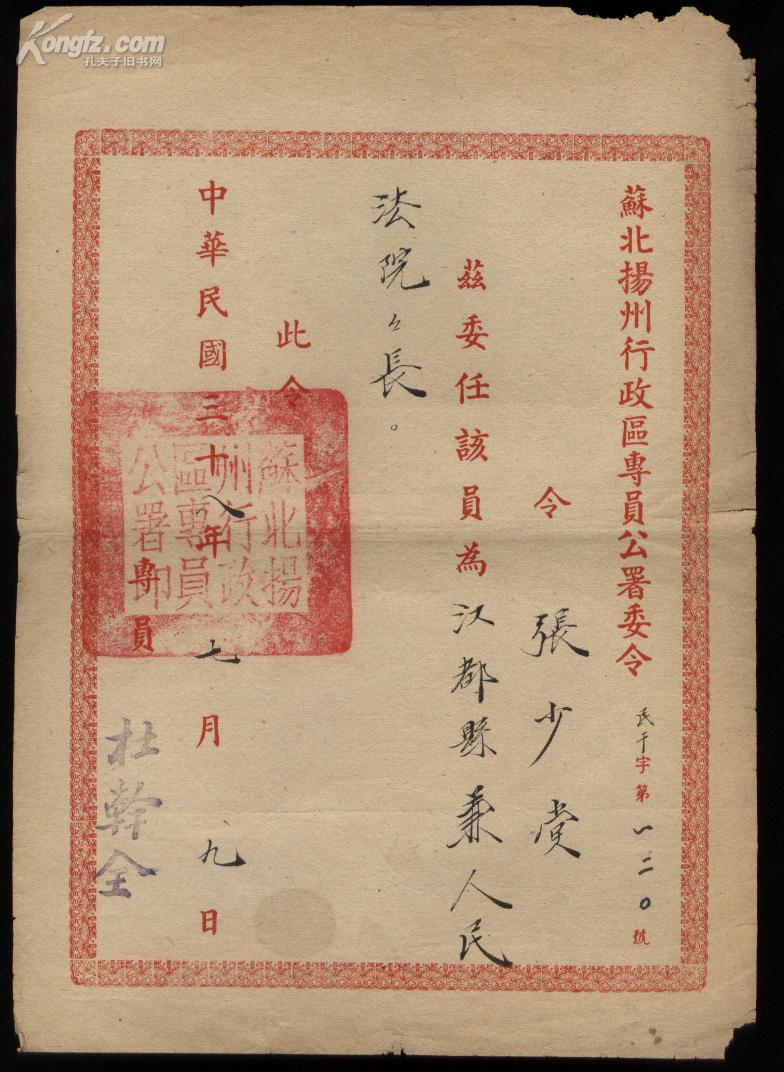 Kongfz.com
孔夫子旧书网
蘇北揚州行政區專員公署委令
民干字第一二〇號
令 張少堂
茲委任該員為江都縣兼人民
法院々長。
此令
中華民國三十八年七月九日
專員
杜幹全
蘇北揚
州行政
區專員
公署印